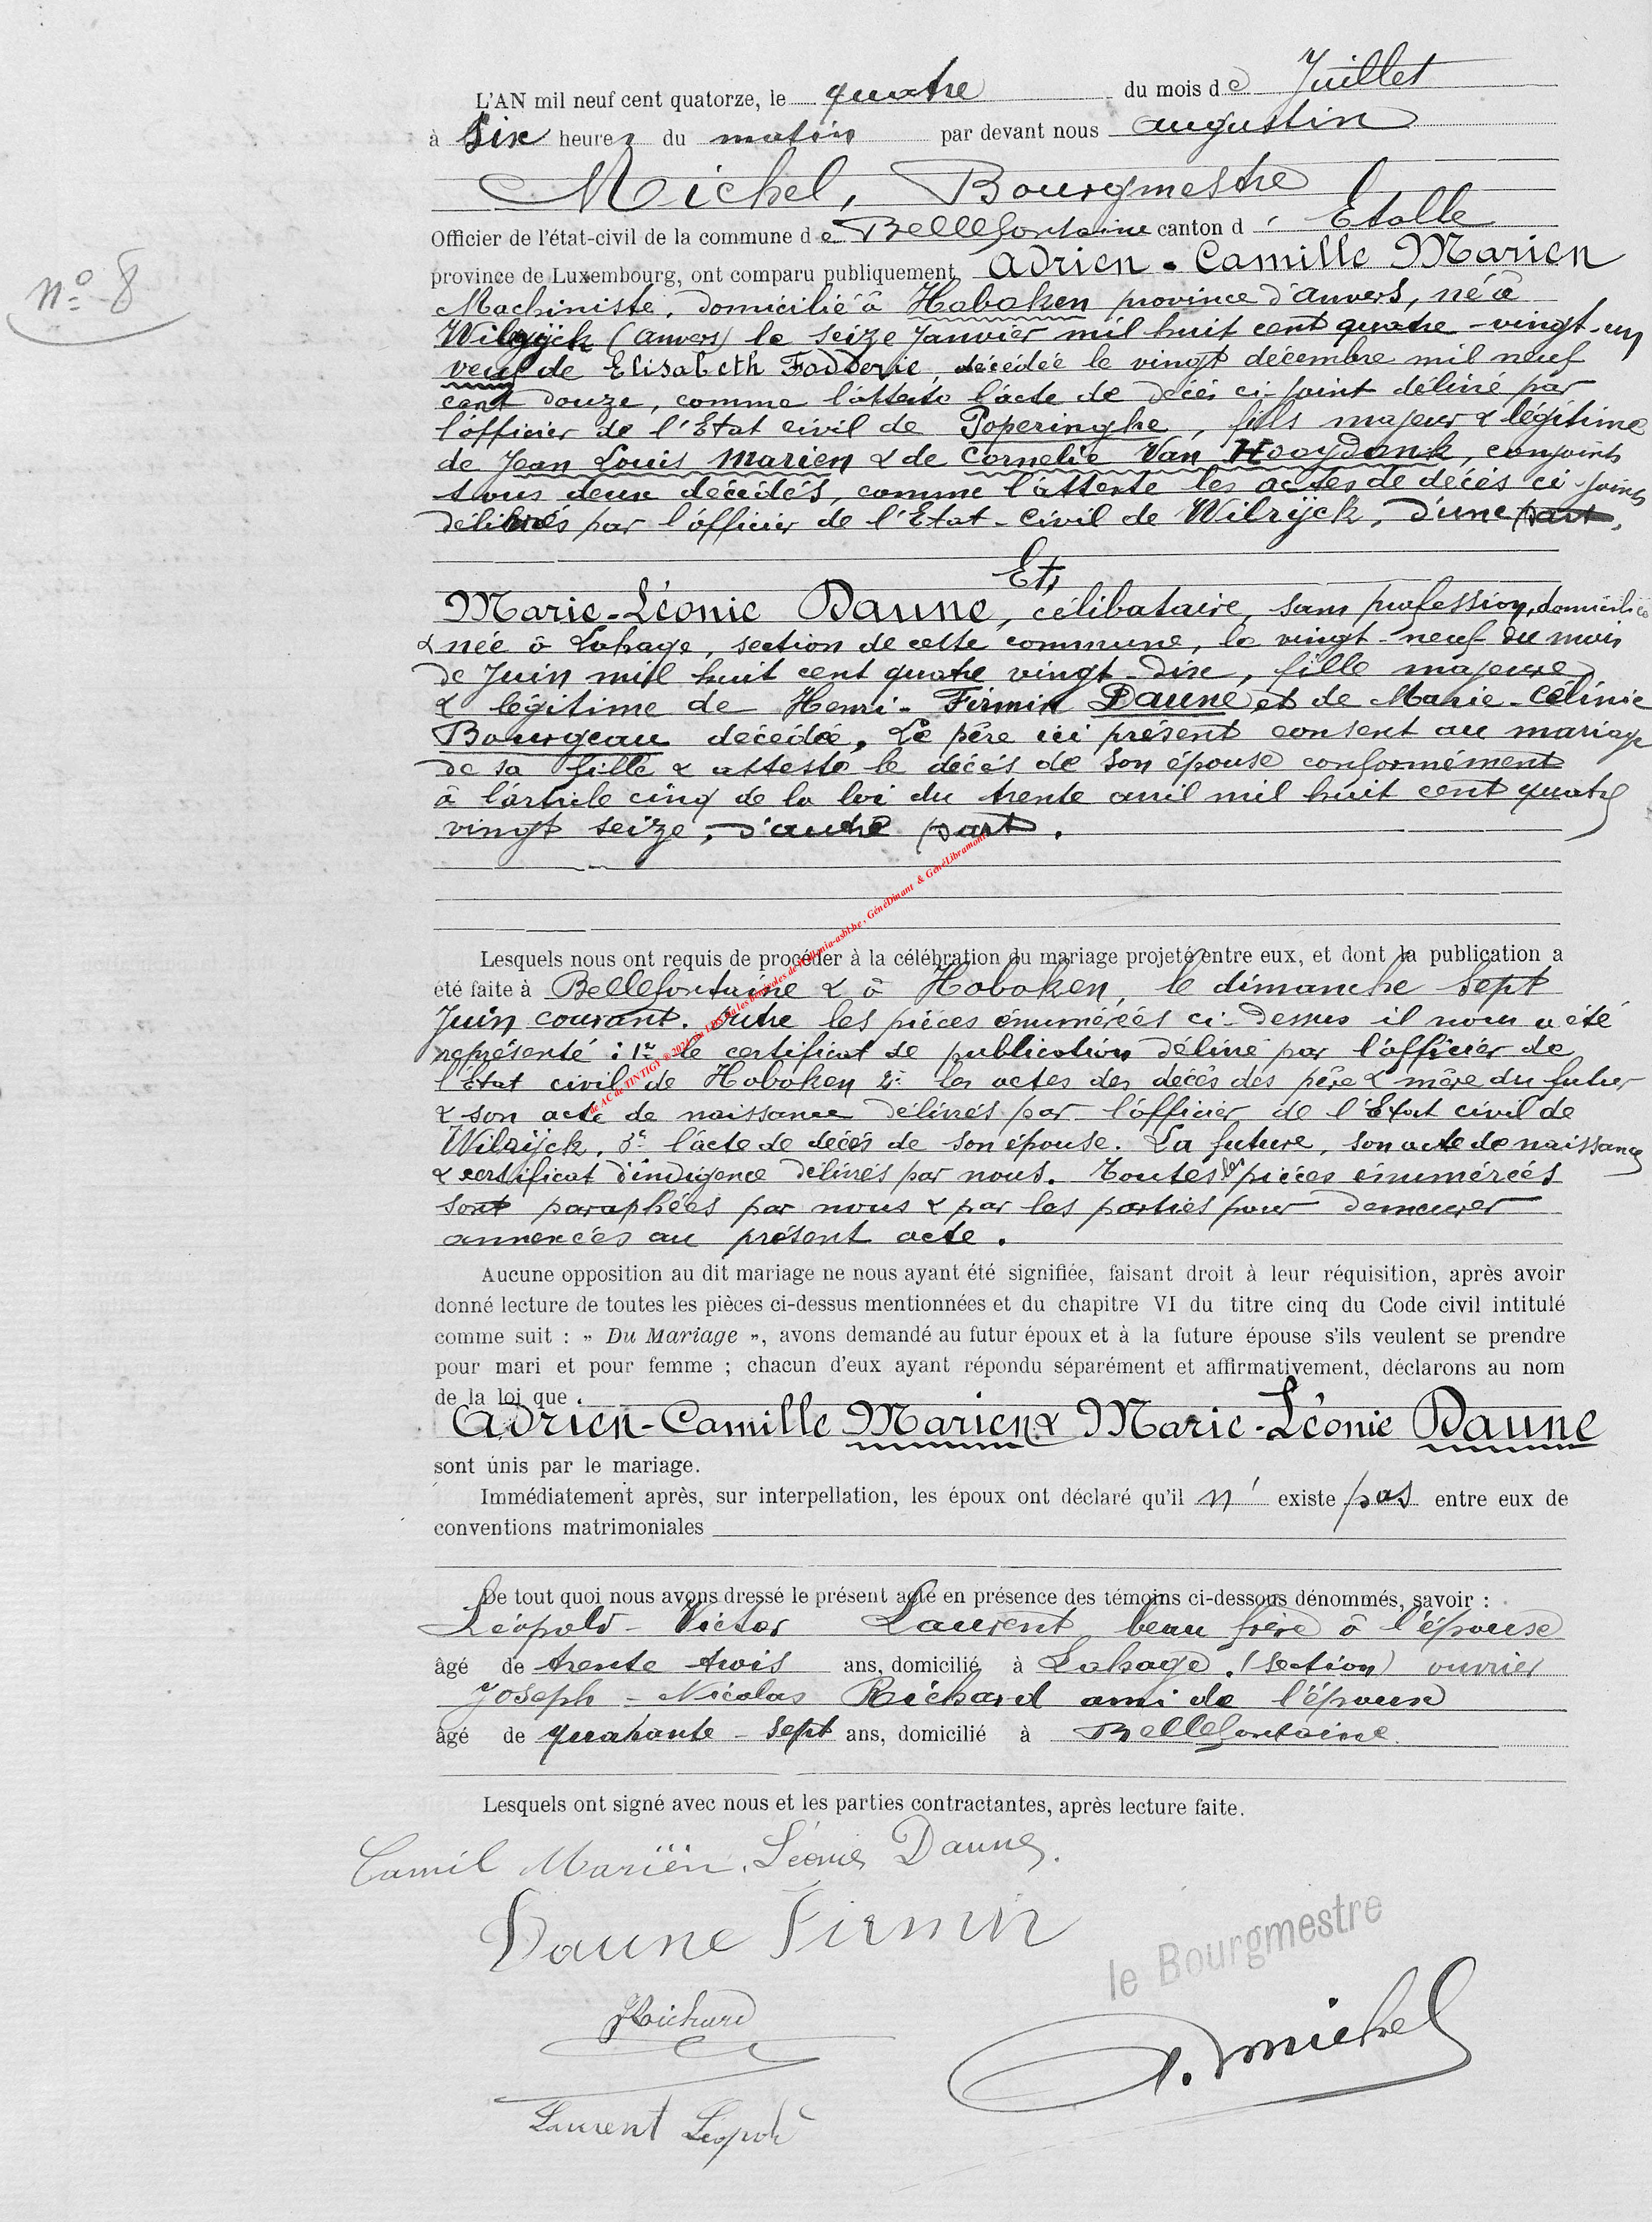 L'AN mil neuf cent quatorze, le quatre du mois de Juillet
à Six heures du matin par devant nous Augustin
Michel, Bourgmestre
Officier de l'état-civil de la commune de Bellefontaine canton d'Etalle
province de Luxembourg, ont comparu publiquement Adrien-Camille Marien
N° 8
Machiniste, domicilié à Hoboken province d'Anvers, né à
Wilryck (Anvers) le seize Janvier mil huit cent quatre-vingt-un
veuf de Elisabeth Fodderie, décédée le vingt décembre mil neuf
cent douze, comme l'atteste l'acte de décès ci-joint délivré par
l'officier de l'Etat civil de Poperinghe, fils majeur & légitime
de Jean Louis Marien & de Cornelie Van Hooydonk, conjoints
tous deux décédés, comme l'atteste les actes de décès ci-joints
délivrés par l'officier de l'Etat-Civil de Wilrijck, d'une part,
Et,
Marie-Léonie Daune, célibataire, sans profession, domiciliée
& née à Lahage, section de cette commune, le vingt-neuf du mois
de Juin mil huit cent quatre vingt-dix, fille majeure
& légitime de Henri-Firmin Daune et de Marie-Célinie
Bourgeau décédée. Le père ici présent consent au mariage
de sa fille & atteste le décès de son épouse conformément
à l'article cinq de la loi du trente avril mil huit cent quatre
vingt seize, d'autre part.
Lesquels nous ont requis de procéder à la célébration du mariage projeté entre eux, et dont la publication a
été faite à Bellefontaine & à Hoboken, le dimanche Sept
Juin courant. Outre les pièces énumérées ci-dessus il nous a été
représenté : 1° le certificat de publication délivré par l'officier de
l'Etat civil de Hoboken 2° les actes des décès des père & mère du futur
& son acte de naissance délivrés par l'officier de l'Etat civil de
Wilrijck, 3° l'acte de décès de son épouse. La future, son acte de naissance
& certificat d'indigence délivrés par nous. Toutes les pièces énumérées
sont paraphées par nous & par les parties pour demeurer
annexées au présent acte.
Aucune opposition au dit mariage ne nous ayant été signifiée, faisant droit à leur réquisition, après avoir
donné lecture de toutes les pièces ci-dessus mentionnées et du chapitre VI du titre cinq du Code civil intitulé
comme suit : » Du Mariage », avons demandé au futur époux et à la future épouse s'ils veulent se prendre
pour mari et pour femme ; chacun d'eux ayant répondu séparément et affirmativement, déclarons au nom
de la loi que
Adrien-Camille Marien & Marie-Léonie Daune
sont unis par le mariage.
Immédiatement après, sur interpellation, les époux ont déclaré qu'il n'existe pas entre eux de
conventions matrimoniales
De tout quoi nous avons dressé le présent acte en présence des témoins ci-dessous dénommés, savoir :
Léopold-Victor Laurent beau frère à l'épouse
âgé de trente trois ans, domicilié à Lahage. (section) ouvrier
Joseph-Nicolas Richard ami de l'épouse
âgé de quarante-sept ans, domicilié à Bellefontaine
Lesquels ont signé avec nous et les parties contractantes, après lecture faite.
Camil Mariën. Léonie Daune.
Daune Firmin
le Bourgmestre
JRichard
A. Michel
Laurent Léopold